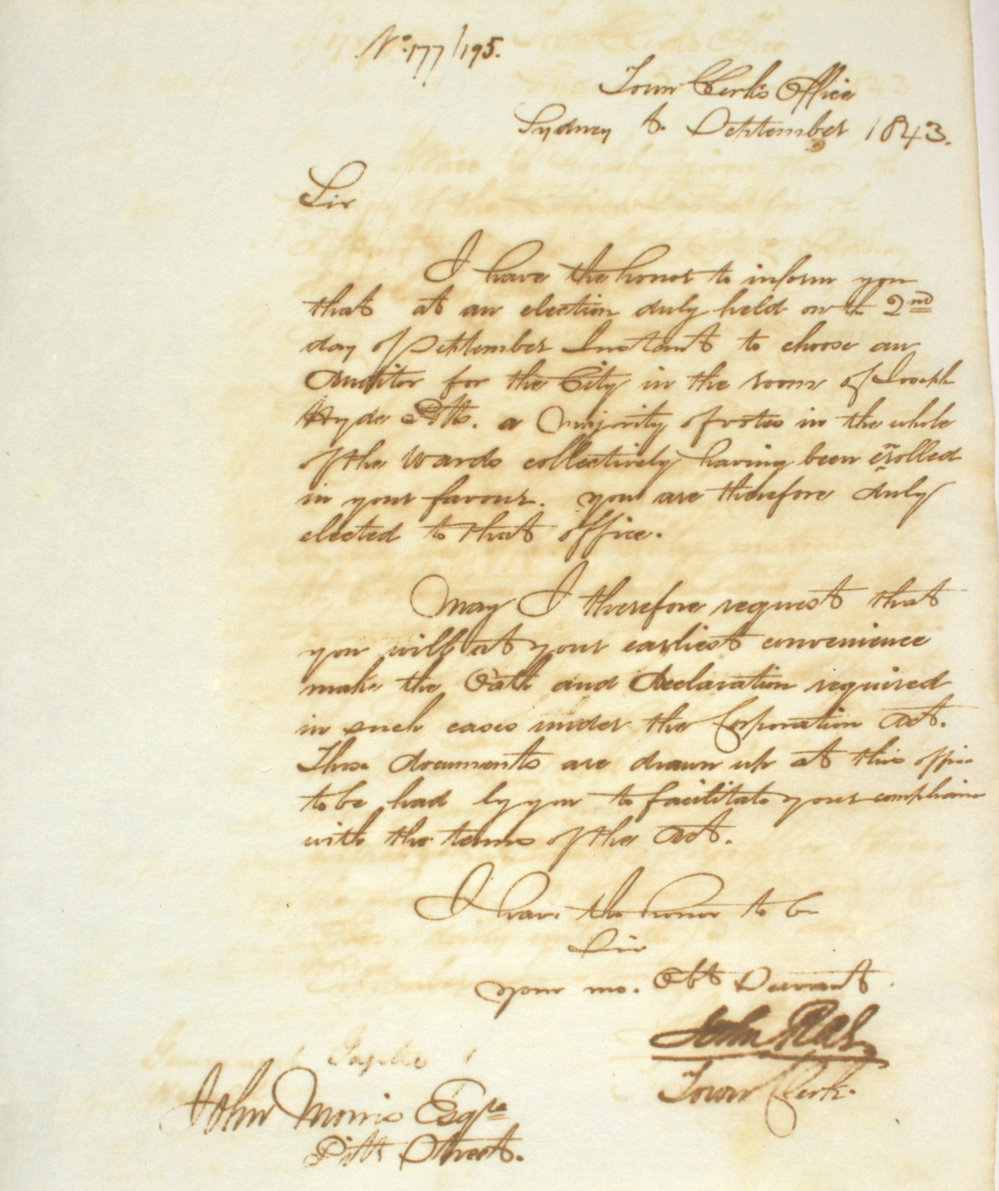 No. 177/195.
Town Clerk's Office
Sydney 5. September 1843.
Sir
I have the honor to inform you
that at an election duly held on the 2nd
day of September Instant to choose an
Auditor for the City in the room of Joseph
Hyde Potts. a Majority of votes in the whole
of the Wards collectively having been enrolled
in your favour. you are therefore duly
elected to that office.
May I therefore request that
you will at your earliest convenience
make the Oath and Declaration required
in such cases under the Corporation Act.
These documents are drawn up at this office
to be had by you to facilitate your compliance
with the terms of the Act.
I have the honor to be
Sir
your mo. Obt Servant.
John Rae.
Town Clerk.
John Morris Esqre
Pitt Street.